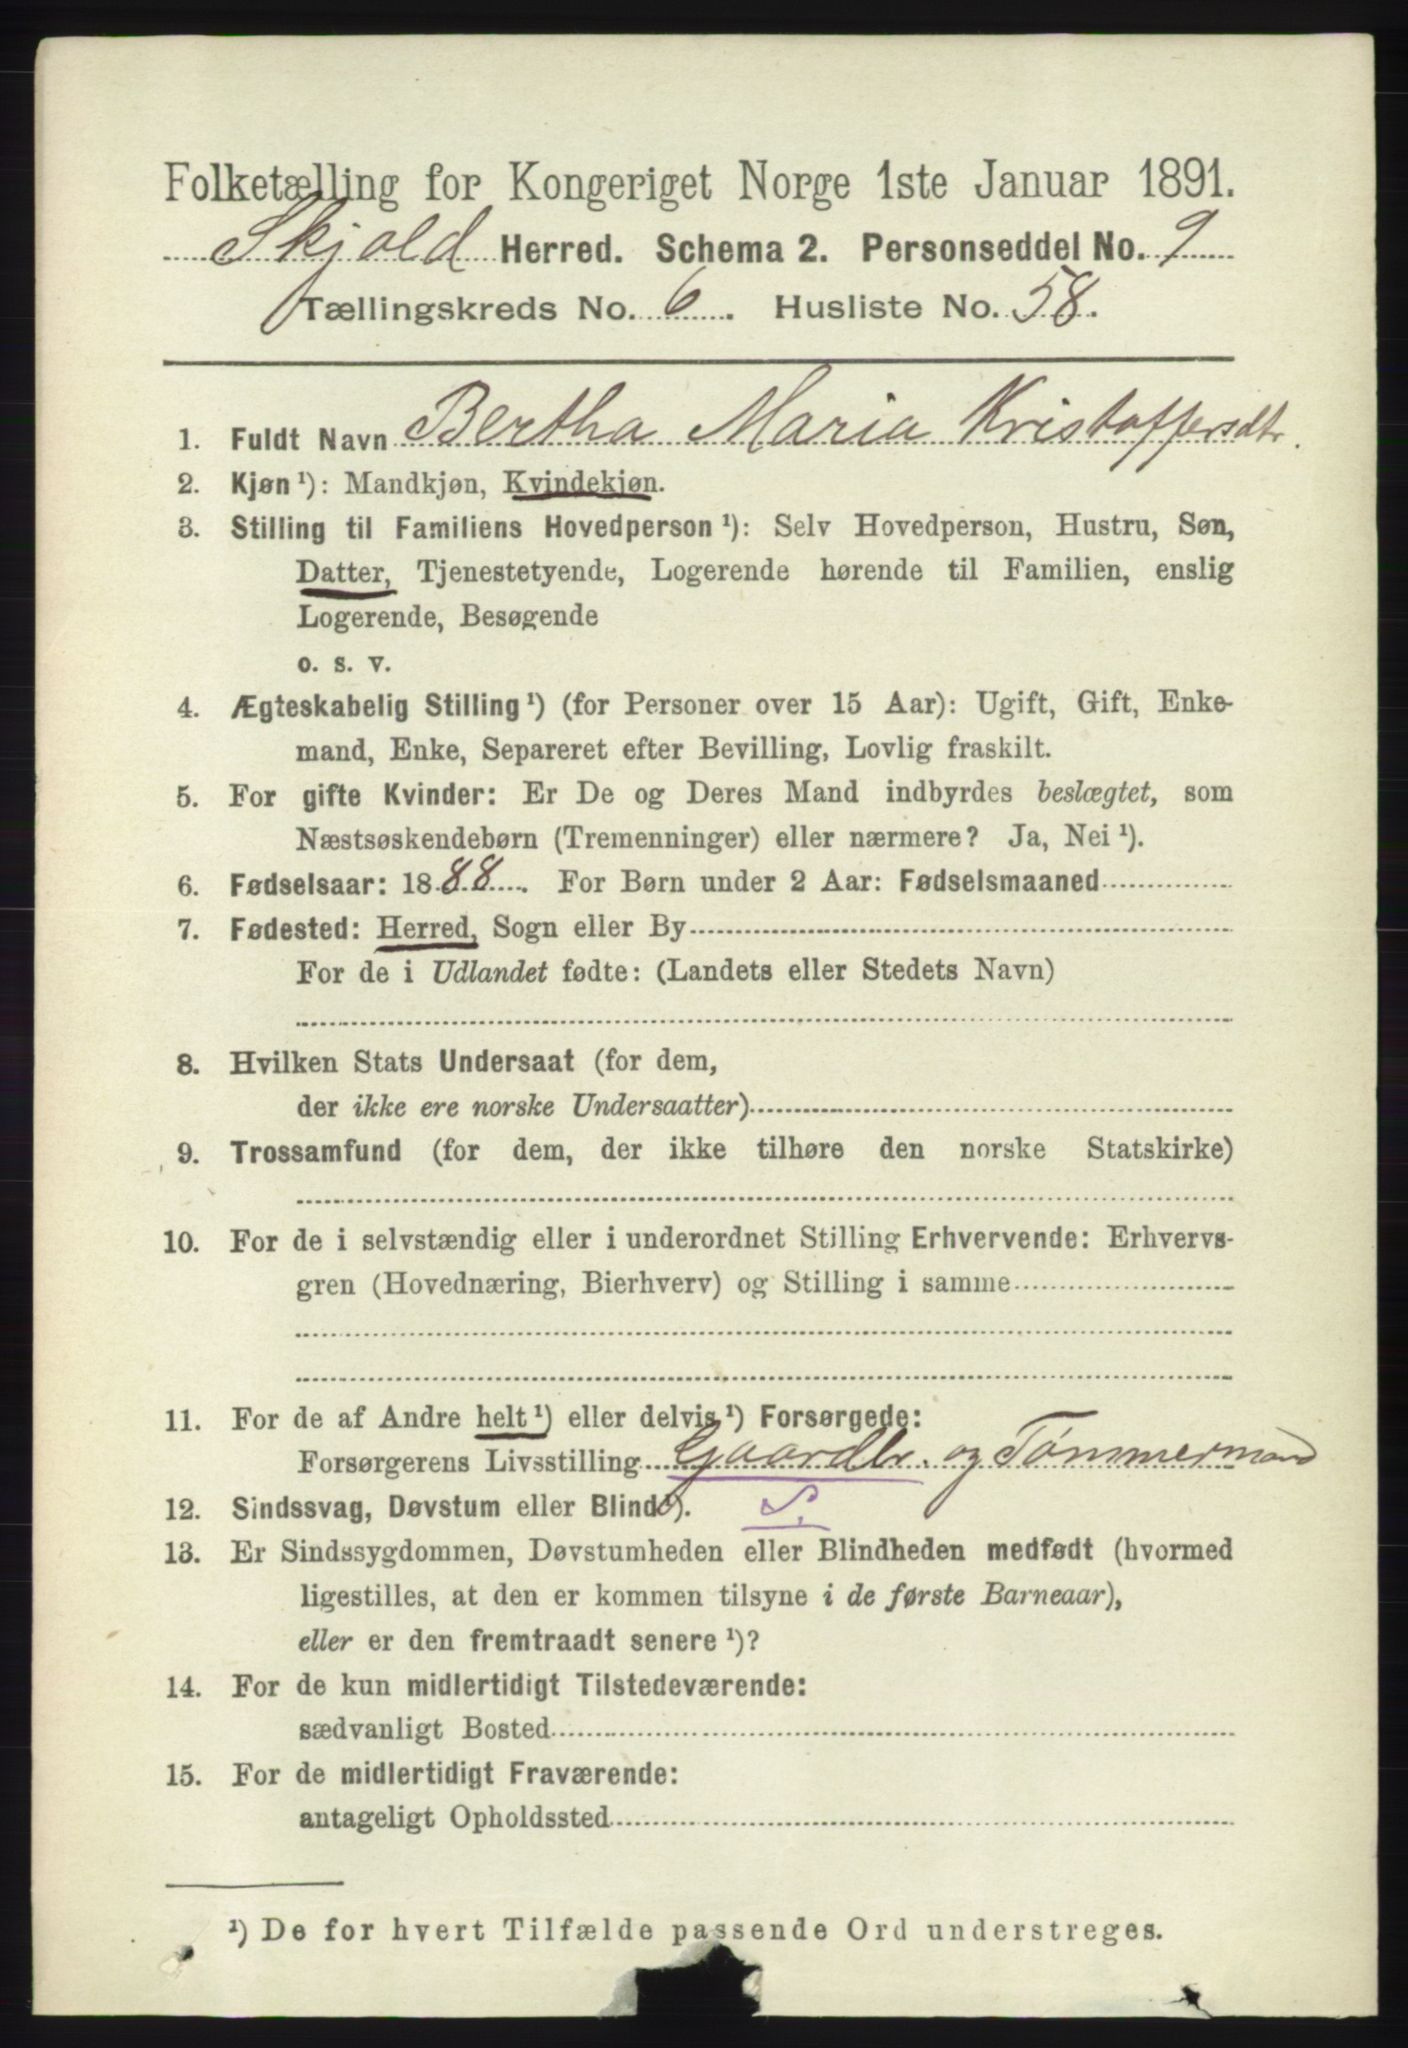 Folketælling for Kongeriget Norge 1ste Januar 1891.
Skjold Herred. Schema 2. Personseddel No. 9
Tællingskreds No. 6. Husliste No. 58.
1. Fuldt Navn Bertha Maria Kristoffersdtr.
2. Kjøn ¹): Mandkjøn, Kvindekjøn.
3. Stilling til Familiens Hovedperson ¹): Selv Hovedperson, Hustru, Søn,
Datter, Tjenestetyende, Logerende hørende til Familien, enslig
Logerende, Besøgende
o. s. v.
4. Ægteskabelig Stilling ¹) (for Personer over 15 Aar): Ugift, Gift, Enke-
mand, Enke, Separeret efter Bevilling, Lovlig fraskilt.
5. For gifte Kvinder: Er De og Deres Mand indbyrdes beslægtet, som
Næstsøskendebørn (Tremenninger) eller nærmere? Ja, Nei ¹).
6. Fødselsaar: 1888. For Børn under 2 Aar: Fødselsmaaned
7. Fødested: Herred, Sogn eller By
For de i Udlandet fødte: (Landets eller Stedets Navn)
8. Hvilken Stats Undersaat (for dem,
der ikke ere norske Undersaatter)
9. Trossamfund (for dem, der ikke tilhøre den norske Statskirke)
10. For de i selvstændig eller i underordnet Stilling Erhvervende: Erhvervs-
gren (Hovednæring, Bierhverv) og Stilling i samme
11. For de af Andre helt ¹) eller delvis ¹) Forsørgede:
Forsørgerens Livsstilling Gaardbr. og Tømmermand
12. Sindssvag, Døvstum eller Blind ¹). S.
13. Er Sindssygdommen, Døvstumheden eller Blindheden medfødt (hvormed
ligestilles, at den er kommen tilsyne i de første Barneaar),
eller er den fremtraadt senere ¹)?
14. For de kun midlertidigt Tilstedeværende:
sædvanligt Bosted
15. For de midlertidigt Fraværende:
antageligt Opholdssted
¹) De for hvert Tilfælde passende Ord understreges.